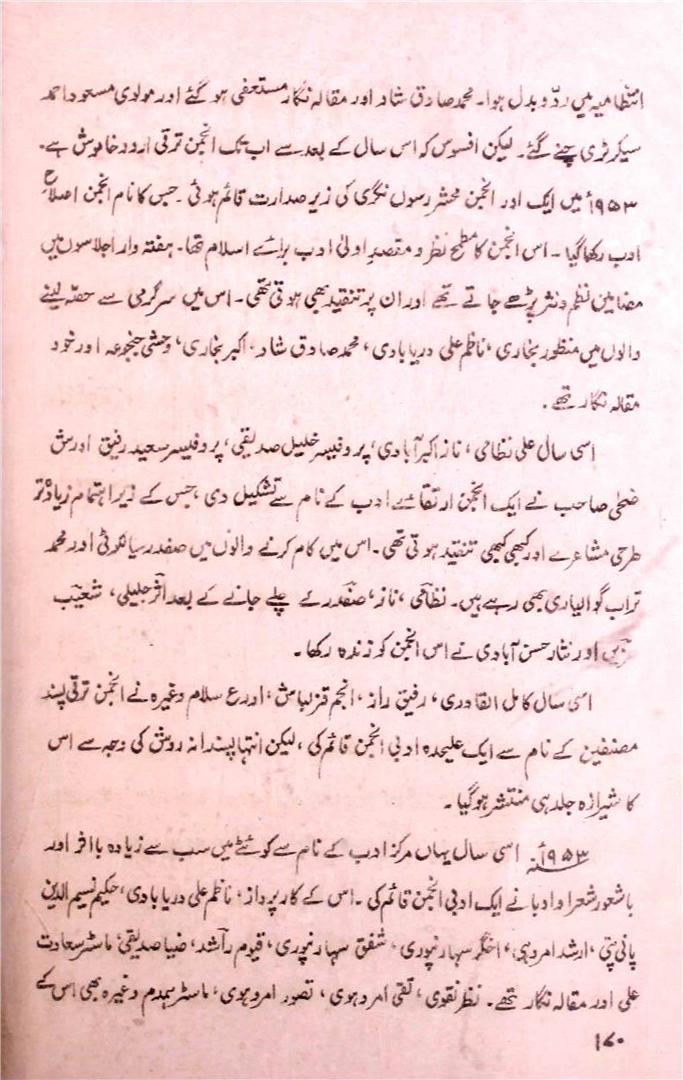 انتظامیہ میں ردّ و بدل ہوا۔ محمد صادق شاد اور مقالہ نگار مستعفی ہو گئے اور مولوی مسعود احمد
سیکرٹری چنے گئے۔ لیکن افسوس کہ اس سال کے بعد سے اب تک انجمن ترقی اردو خاموش ہے۔
۱۹۵۳ء میں ایک اور انجمن محشر رسول نگری کی زیر صدارت قائم ہوئی۔ جس کا نام انجمن اصلاح
ادب رکھا گیا۔ اس انجمن کا مطمح نظر و مقصدِ اولیٰ ادب برائے اسلام تھا۔ ہفتہ وار اجلاسوں میں
مضامین نظم و نثر پڑھے جاتے تھے اور ان پر تنقید بھی ہوتی تھی۔ اس میں سرگرمی سے حصّہ لینے
والوں میں منظور بخاری، ناظم علی دریابادی، محمد صادق شاد، اکبر بخاری، وحشی جنجوعہ اور خود
مقالہ نگار تھے۔
اسی سال علی نظامی، ناز اکبر آبادی، پروفیسر خلیل صدیقی، پروفیسر سعید رفیق اور ش
ضحٰی صاحب نے ایک انجمن ارتقائے ادب کے نام سے تشکیل دی، جس کے زیر اہتمام زیادہ تر
طرحی مشاعرے اور کبھی کبھی تنقید ہوتی تھی۔ اس میں کام کرنے والوں میں صفدر سیالکوٹی اور محمد
تراب گوالیاری بھی رہے ہیں۔ نظامی، ناز، صفدر کے چلے جانے کے بعد اثر جلیلی، شعیب
حزیں اور نثار حسن آبادی نے اس انجمن کو زندہ رکھا۔
اسی سال کامل القادری، رفیق راز، انجم قزلباش، اور ع سلام وغیرہ نے انجمن ترقی پسند
مصنفین کے نام سے ایک علیحدہ ادبی انجمن قائم کی، لیکن انتہا پسندانہ روش کی وجہ سے اس
کا شیرازہ جلد ہی منتشر ہو گیا۔
۱۹۵۳ء اسی سال یہاں مرکز ادب کے نام سے کوئٹے میں سب سے زیادہ بااثر اور
باشعور شعرا و ادبا نے ایک ادبی انجمن قائم کی۔ اس کے کارپرداز، ناظم علی دریابادی، حکیم نسیم الدین
پانی پتی، ارشد امروہی، اخگر سہارنپوری، شفق سہارنپوری، قیوم راشد، ضیا صدیقی، ماسٹر سعادت
علی اور مقالہ نگار تھے۔ نظر نقوی، تقی امروہوی، تصور امروہوی، ماسٹر ہمدم وغیرہ بھی اس کے
۱۷۰